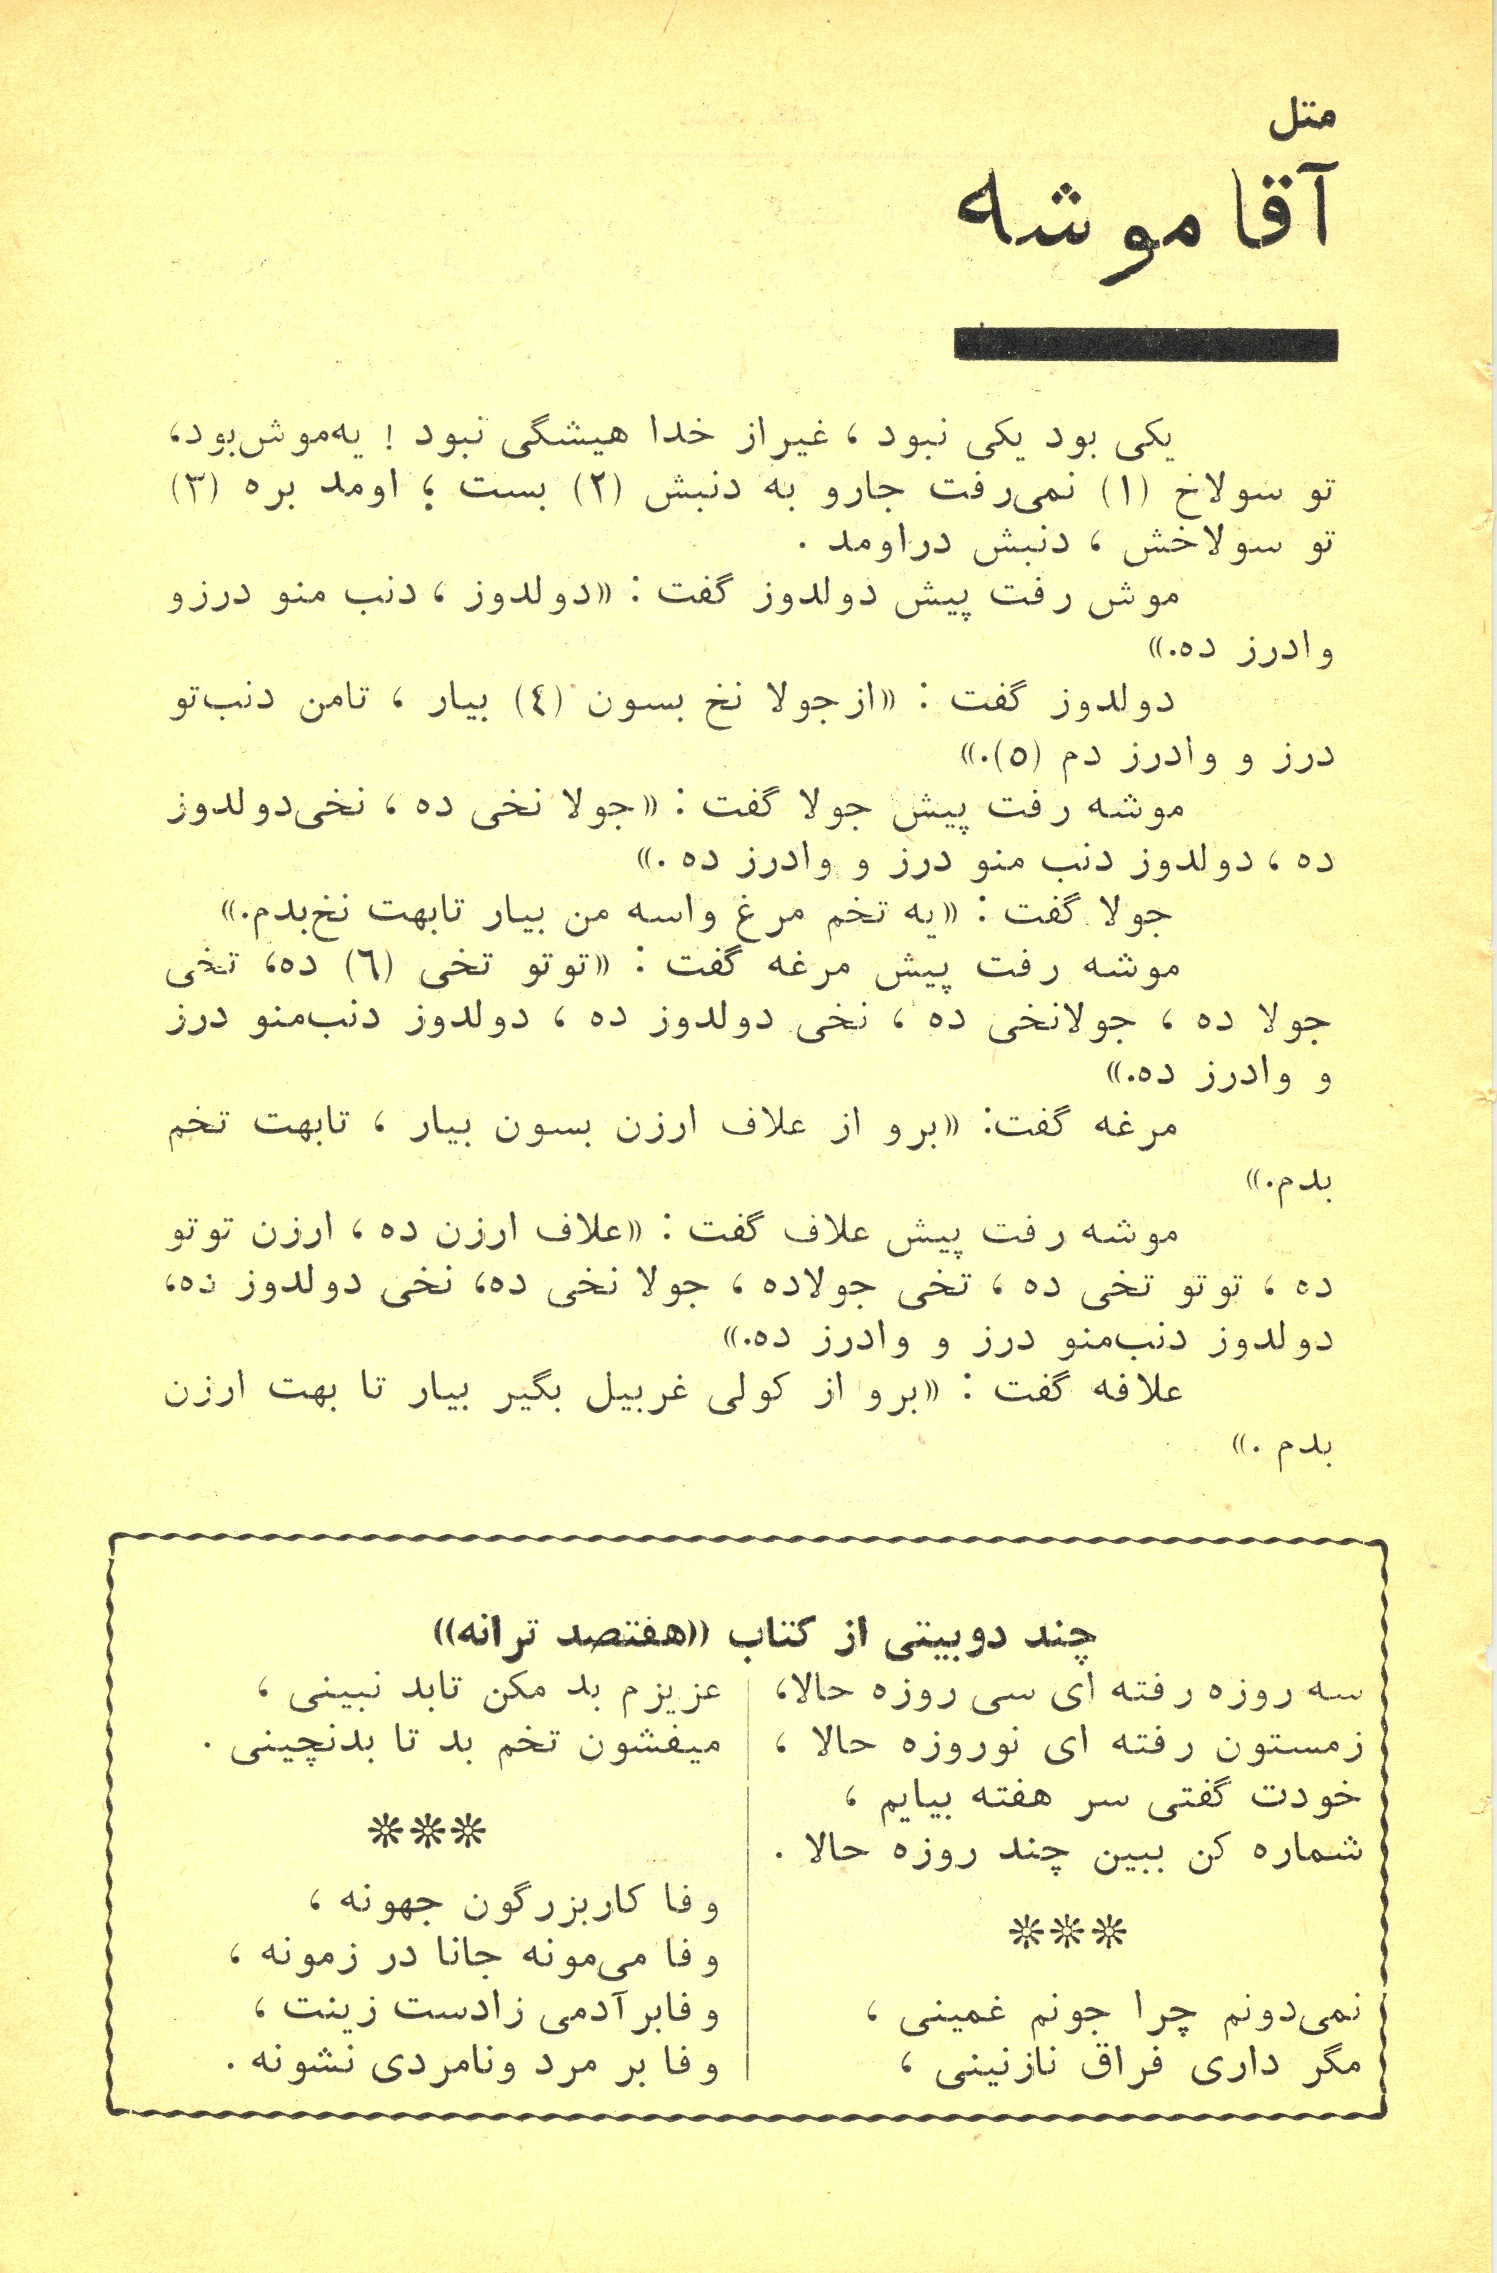 متل
آقا موشه
یکی بود یکی نبود ، غیر از خدا هیشگی نبود ! یه‌موش‌بود،
تو سولاخ (۱) نمی‌رفت جارو به دنبش (۲) بست ؛ اومد بره (۳)
تو سولاخش ، دنبش دراومد .
موش رفت پیش دولدوز گفت : «دولدوز ، دنب منو درزو
وادرز ده.»
دولدوز گفت : «ازجولا نخ بسون (٤) بیار ، تامن دنب‌تو
درز و وادرز دم (٥).»
موشه رفت پیش جولا گفت : «جولا نخی ده ، نخی‌دولدوز
ده ، دولدوز دنب منو درز و وادرز ده .»
جولا گفت : «یه تخم مرغ واسه من بیار تابهت نخ‌بدم.»
موشه رفت پیش مرغه گفت : «توتو تخی (٦) ده، تخی
جولا ده ، جولانخی ده ، نخی دولدوز ده ، دولدوز دنب‌منو درز
و وادرز ده.»
مرغه گفت: «برو از علاف ارزن بسون بیار ، تابهت تخم
بدم.»
موشه رفت پیش علاف گفت : «علاف ارزن ده ، ارزن توتو
ده ، توتو تخی ده ، تخی جولاده ، جولا نخی ده، نخی دولدوز ده،
دولدوز دنب‌منو درز و وادرز ده.»
علافه گفت : «برو از کولی غربیل بگیر بیار تا بهت ارزن
بدم .»
چند دوبیتی از کتاب «هفتصد ترانه»
سه روزه رفته ای سی روزه حالا،
زمستون رفته ای نوروزه حالا ،
خودت گفتی سر هفته بیایم ،
شماره کن ببین چند روزه حالا .
***
نمی‌دونم چرا جونم غمینی ،
مگر داری فراق نازنینی ،
عزیزم بد مکن تابد نبینی ،
میفشون تخم بد تا بدنچینی .
***
وفا کاربزرگون جهونه ،
وفا می‌مونه جانا در زمونه ،
وفابر آدمی زادست زینت ،
وفا بر مرد ونامردی نشونه .